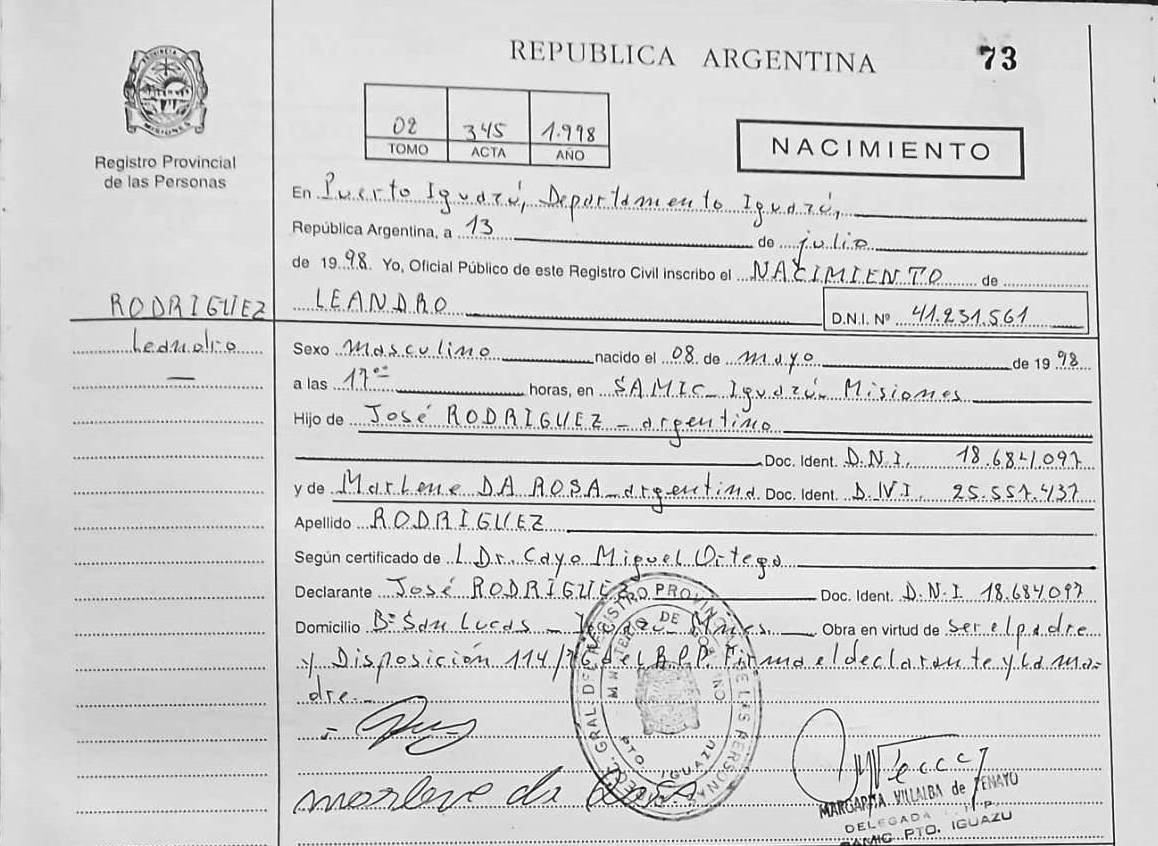 REPUBLICA ARGENTINA
73
PROVINCIA
MISIONES
Registro Provincial
de las Personas
02 345 1.998
TOMO ACTA AÑO
NACIMIENTO
En Puerto Iguazú, Departamento Iguazú,
República Argentina, a 13 de julio
de 1998. Yo, Oficial Público de este Registro Civil inscribo el NACIMIENTO de
RODRIGUEZ
LEANDRO
D.N.I. Nº 41.231.561
Leandro
Sexo Masculino nacido el 08 de mayo de 1998
a las 17 horas, en SAMIC Iguazú Misiones
Hijo de José RODRIGUEZ - argentino
Doc. Ident. D.N.I. 18.684.097
y de Marlene DA ROSA - argentina Doc. Ident. D.N.I. 25.557.437
Apellido RODRIGUEZ
Según certificado de L Dr. Cayo Miguel Ortega
Declarante José RODRIGUEZ Doc. Ident. D.N.I 18.684.097
Domicilio Bº San Lucas - Mnes Obra en virtud de ser el padre
y Disposición 114/ del R.P.P. Firma el declarante y la ma-
dre.-
marlene da Rosa
GRAL DE REGISTRO PROVINCIAL DE LAS PERSONAS
MINISTERIO DE GOBIERNO
PTO. IGUAZU
MARGARITA VILLALBA de
DELEGADA
SAMIC PTO. IGUAZU